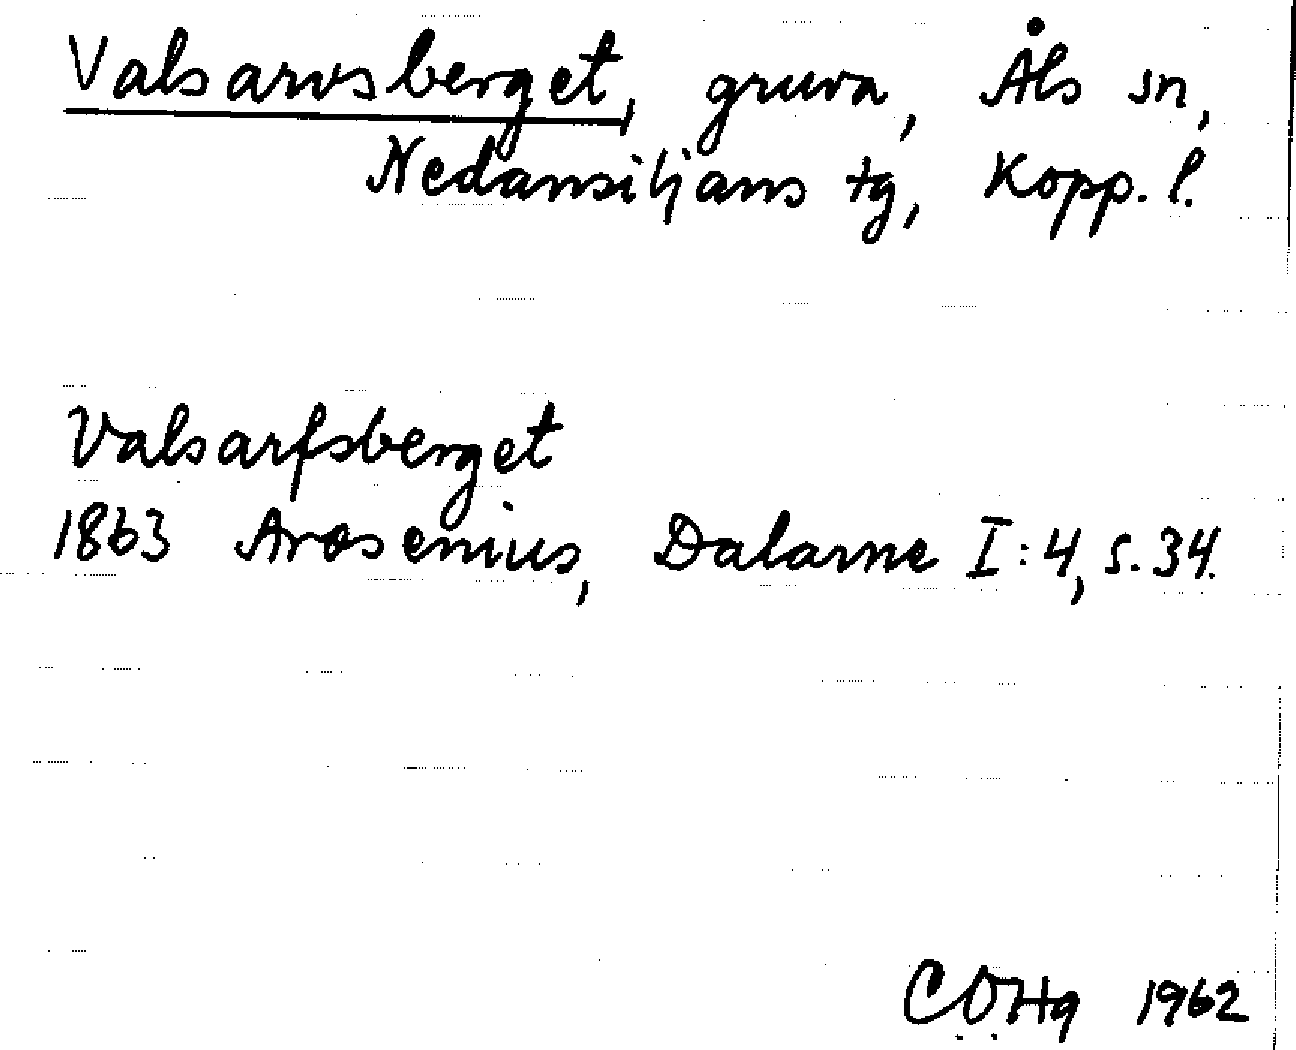 Valsarvsberget, gruva, Åls sn,
Nedansiljans tg, Kopp. l.
Valsarfsberget
1863 Arosenius, Dalarne I:4, s. 34.
C.O.Hg 1962